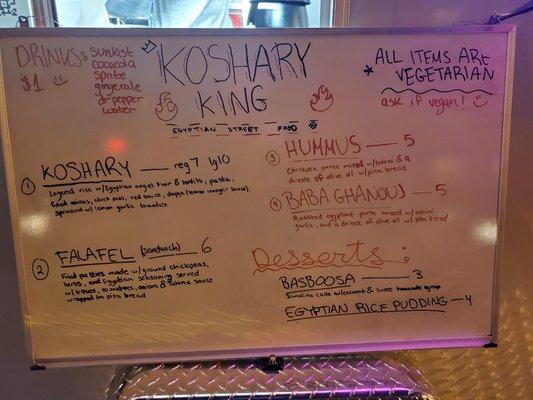 DRINKS:
$1
sunkist
cocacola
sprite
gingerale
dr pepper
water
KOSHARY
KING
EGYPTIAN STREET FOOD
* ALL ITEMS ARE
VEGETARIAN
ask if vegan!
1 KOSHARY reg 7 lg 10
Layered rice w/Egyptian angel hair & lentils, pasta,
fried onions, chick peas, red sauce, daqqa (lemon vinegar sauce),
w/ lemon garlic tomatics
2 FALAFEL (sandwich) 6
Fried patties made w/ground chickpeas,
herbs, and Egyptian seasoning served
w/ lettuce, tomatoes, onions & tahina sauce
wrapped in pita bread
3 HUMMUS 5
Chickpea puree mixed w/tahini & a
drizzle of olive oil w/ pita bread
4 BABA GHANOUJ 5
Roasted eggplant puree mixed w/ tahini
garlic, and a drizzle of olive oil w/ pita bread
Desserts:
BASBOOSA 3
Semolina cake w/coconut & sweet homemade syrup
EGYPTIAN RICE PUDDING 4